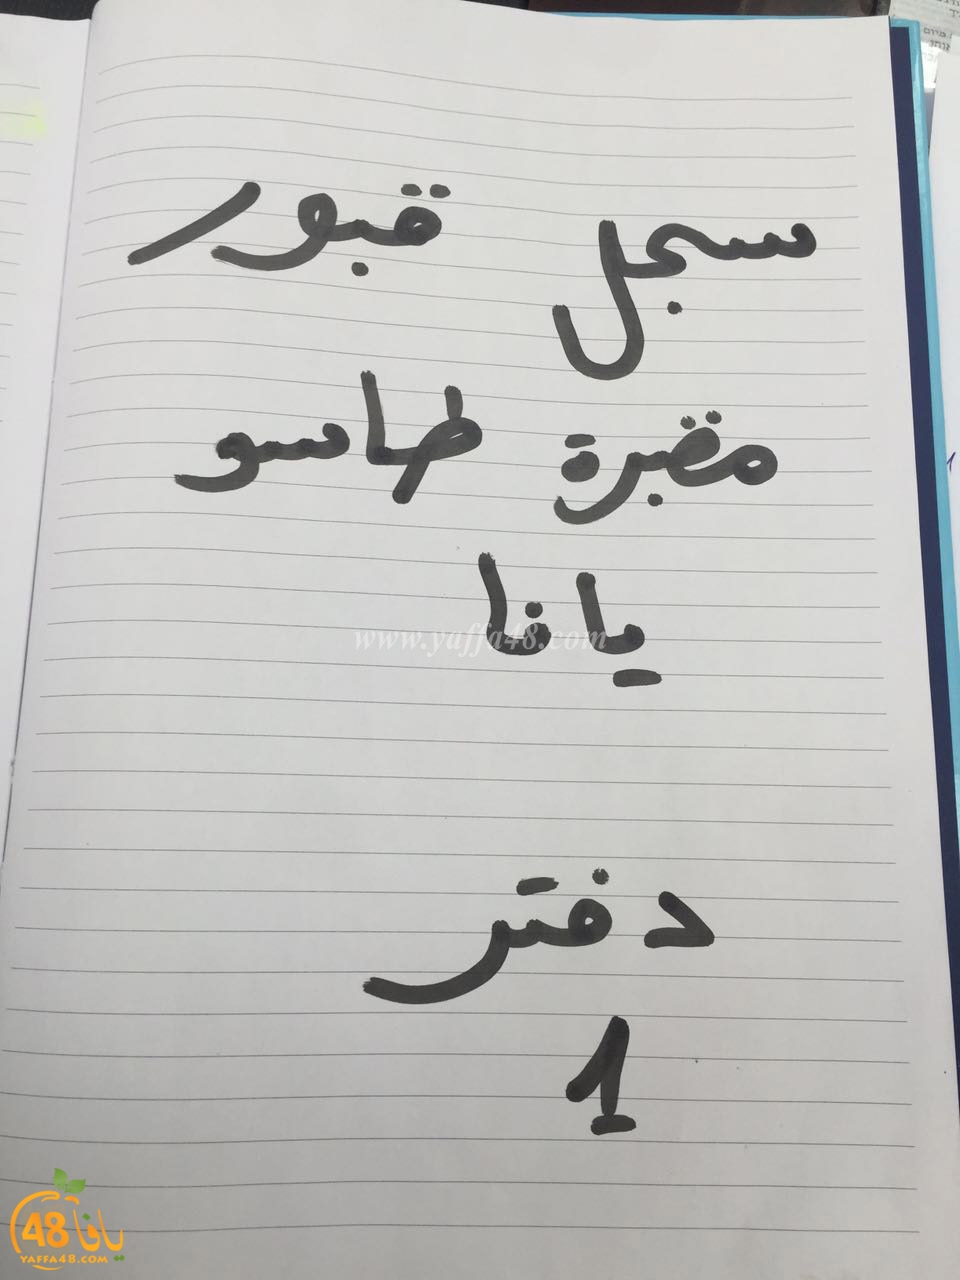 سجل قبور
مقبرة طاسو
يافا
www.yaffa48.com
دفتر
1
يافا 48
YAFFA48.COM